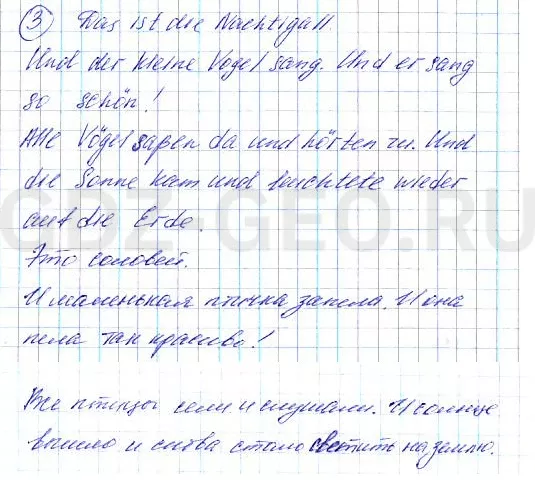 3 Das ist die Nachtigall.
Und der kleine Vogel sang. Und er sang
so schön!
Alle Vögel saßen da und hörten zu. Und
die Sonne kam und leuchtete wieder
auf die Erde.
GDZ-GEO.RU
Это соловей.
И маленькая птичка запела. И она
пела так красиво!
Все птицы сели и слушали. И солнце
вышло и снова стало светить на землю.